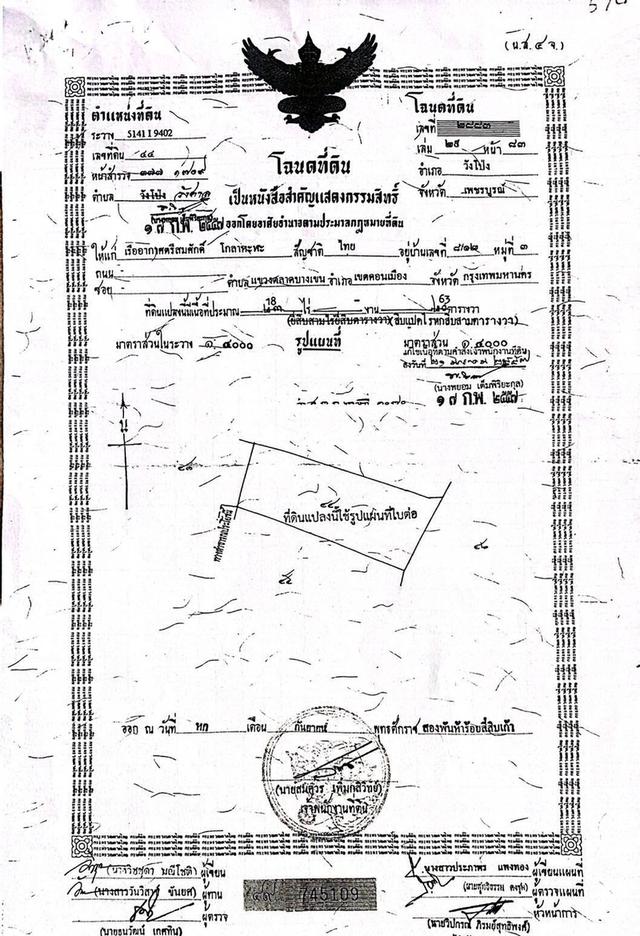 (น.ส.๔ จ.)
ตำแหน่งที่ดิน
ระวาง S1411 9402
เลขที่ดิน ๔๔
หน้าสำรวจ ๓๗๗ ๑๗๐๙
ตำบล วังโป่ง วังศาล
โฉนดที่ดิน
เลขที่ ๒๘๘๓
เล่ม ๒๙ หน้า ๘๓
อำเภอ วังโป่ง
จังหวัด เพชรบูรณ์
โฉนดที่ดิน
เป็นหนังสือสำคัญแสดงกรรมสิทธิ์
๑๗ กพ. ๒๕๕๗
ออกโดยอาศัยอำนาจตามประมวลกฎหมายที่ดิน
ให้แก่ เรืออากาศตรีสมศักดิ์ โกลาหะหะ สัญชาติ ไทย อยู่บ้านเลขที่ ๘/๑๒ หมู่ที่ ๓
ถนน
ซอย ตำบล แขวงตลาดบางเขน อำเภอ เขตดอนเมือง จังหวัด กรุงเทพมหานคร
ที่ดินแปลงนี้มีเนื้อที่ประมาณ 18 ไร่ - งาน 63 ตารางวา
(ยี่สิบสามไร่ยี่สิบตารางวา)(สิบแปดไร่หกสิบสามตารางวา)
มาตราส่วนในระวาง ๑:๔๐๐๐
รูปแผนที่
มาตราส่วน ๑:๔๐๐๐
แก้ไขเนื้อที่ตามคำสั่งเจ้าพนักงานที่ดิน
(นางพยอม เต็มพิริยะกุล)
๑๗ กพ. ๒๕๕๗
น
๔๔
ที่ดินแปลงนี้ใช้รูปแผนที่ใบต่อ
ทางสาธารณประโยชน์
ออก ณ วันที่ หก เดือน กันยายน พุทธศักราช สองพันห้าร้อยสี่สิบเก้า
เจ้าพนักงานที่ดิน
ผู้เขียน
ผู้ทาน
ผู้ตรวจ
๔๙ 745109
ผู้เขียนแผนที่
ผู้ตรวจแผนที่
หัวหน้าการ